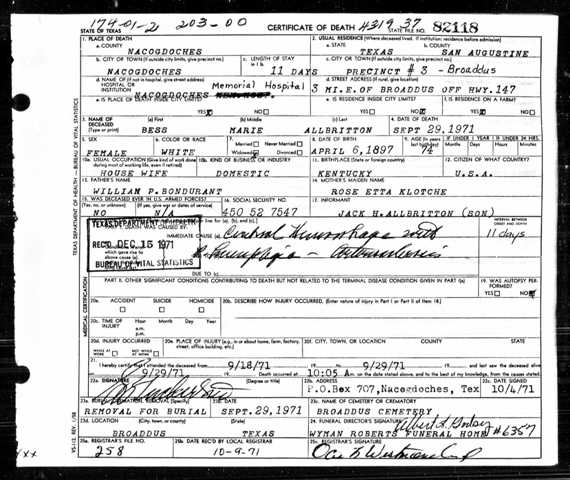 174-01-2 203-00 4319 37
STATE OF TEXAS CERTIFICATE OF DEATH STATE FILE NO. 82118
1. PLACE OF DEATH 2. USUAL RESIDENCE (Where deceased lived. If institution: residence before admission)
a. COUNTY a. STATE b. COUNTY
NACOGDOCHES TEXAS SAN AUGUSTINE
b. CITY OR TOWN (If outside city limits, give precinct no.) c. LENGTH OF STAY in 1 b c. CITY OR TOWN (If outside city limits, give precinct no.)
NACOGDOCHES 11 DAYS PRECINCT #3 - Broaddus
d. NAME OF (If not in hospital, give street address) HOSPITAL OR INSTITUTION d. STREET ADDRESS (If rural, give location)
NACOGDOCHES Memorial Hospital 3 MI.E.OF BROADDUS OFF HWY.147
e. IS PLACE OF DEATH INSIDE CITY LIMITS? e. IS RESIDENCE INSIDE CITY LIMITS? f. IS RESIDENCE ON A FARM?
YES NO YES NO YES NO
3. NAME OF DECEASED (Type or print) (a) First (b) Middle (c) Last 4. DATE OF DEATH
BESS MARIE ALLBRITTON SEPT 29,1971
5. SEX 6. COLOR OR RACE 7. Married Never Married Widowed Divorced 8. DATE OF BIRTH 9. AGE IF UNDER 1 YEAR IF UNDER 24 HRS.
FEMALE WHITE APRIL 6,1897 74 Months Days Hours Min.
10a. USUAL OCCUPATION (Give kind of work done during most of working life, even if retired) 10b. KIND OF BUSINESS OR INDUSTRY 11. BIRTHPLACE (State or foreign country) 12. CITIZEN OF WHAT COUNTRY?
HOUSE WIFE DOMESTIC KENTUCKY U.S.A.
13. FATHER'S NAME 14. MOTHER'S MAIDEN NAME
WILLIAM P.BONDURANT ROSE ETTA KLOTCHE
15. WAS DECEASED EVER IN U.S. ARMED FORCES? 16. SOCIAL SECURITY NO. 17. INFORMANT
NO N/A 450 52 7547 JACK H.ALLBRITTON (SON)
TEXAS DEPARTMENT OF HEALTH
REC'D DEC 15 1971
BUREAU OF VITAL STATISTICS
IMMEDIATE CAUSE (a) Cerebral Hemorrhage with 11 days
INTERVAL BETWEEN ONSET AND DEATH
R. Hemiplegia - Arteriosclerosis
DUE TO (c)
PART II. OTHER SIGNIFICANT CONDITIONS CONTRIBUTING TO DEATH BUT NOT RELATED TO THE TERMINAL DISEASE CONDITION GIVEN IN PART I(a) 19. WAS AUTOPSY PERFORMED?
YES NO
20a. ACCIDENT SUICIDE HOMICIDE 20b. DESCRIBE HOW INJURY OCCURRED. (Enter nature of injury in Part I or Part II of item 18.)
20c. TIME OF INJURY Hour Month Day Year
a.m.
p.m.
20d. INJURY OCCURRED 20e. PLACE OF INJURY (e.g., in or about home, farm, factory, street, office building, etc.) 20f. CITY, TOWN, OR LOCATION COUNTY STATE
WHILE AT WORK NOT WHILE AT WORK
21. I hereby certify that I attended the deceased from 9/18/71 9/29/71
9/29/71 Death occurred at 10:05 A m. on the date stated above, and to the best of my knowledge, from the causes stated.
22a. SIGNATURE (Degree or title) 22b. ADDRESS 22c. DATE SIGNED
P.O.Box 707,Nacogdoches, Tex 10/4/71
23a. BURIAL, CREMATION, REMOVAL (Specify) 23b. DATE 23c. NAME OF CEMETERY OR CREMATORY
REMOVAL FOR BURIAL SEPT.29,1971 BROADDUS CEMETERY
23d. LOCATION (City, town, or county) (State) 24. FUNERAL DIRECTOR'S SIGNATURE
BROADDUS TEXAS WYMAN ROBERTS FUNERAL HOME #6357
25a. REGISTRAR'S FILE NO. 25b. DATE REC'D BY LOCAL REGISTRAR 25c. REGISTRAR'S SIGNATURE
258 10-9-71
TEXAS DEPARTMENT OF HEALTH — BUREAU OF VITAL STATISTICS
MEDICAL CERTIFICATION
VS-112 REV. 1/58